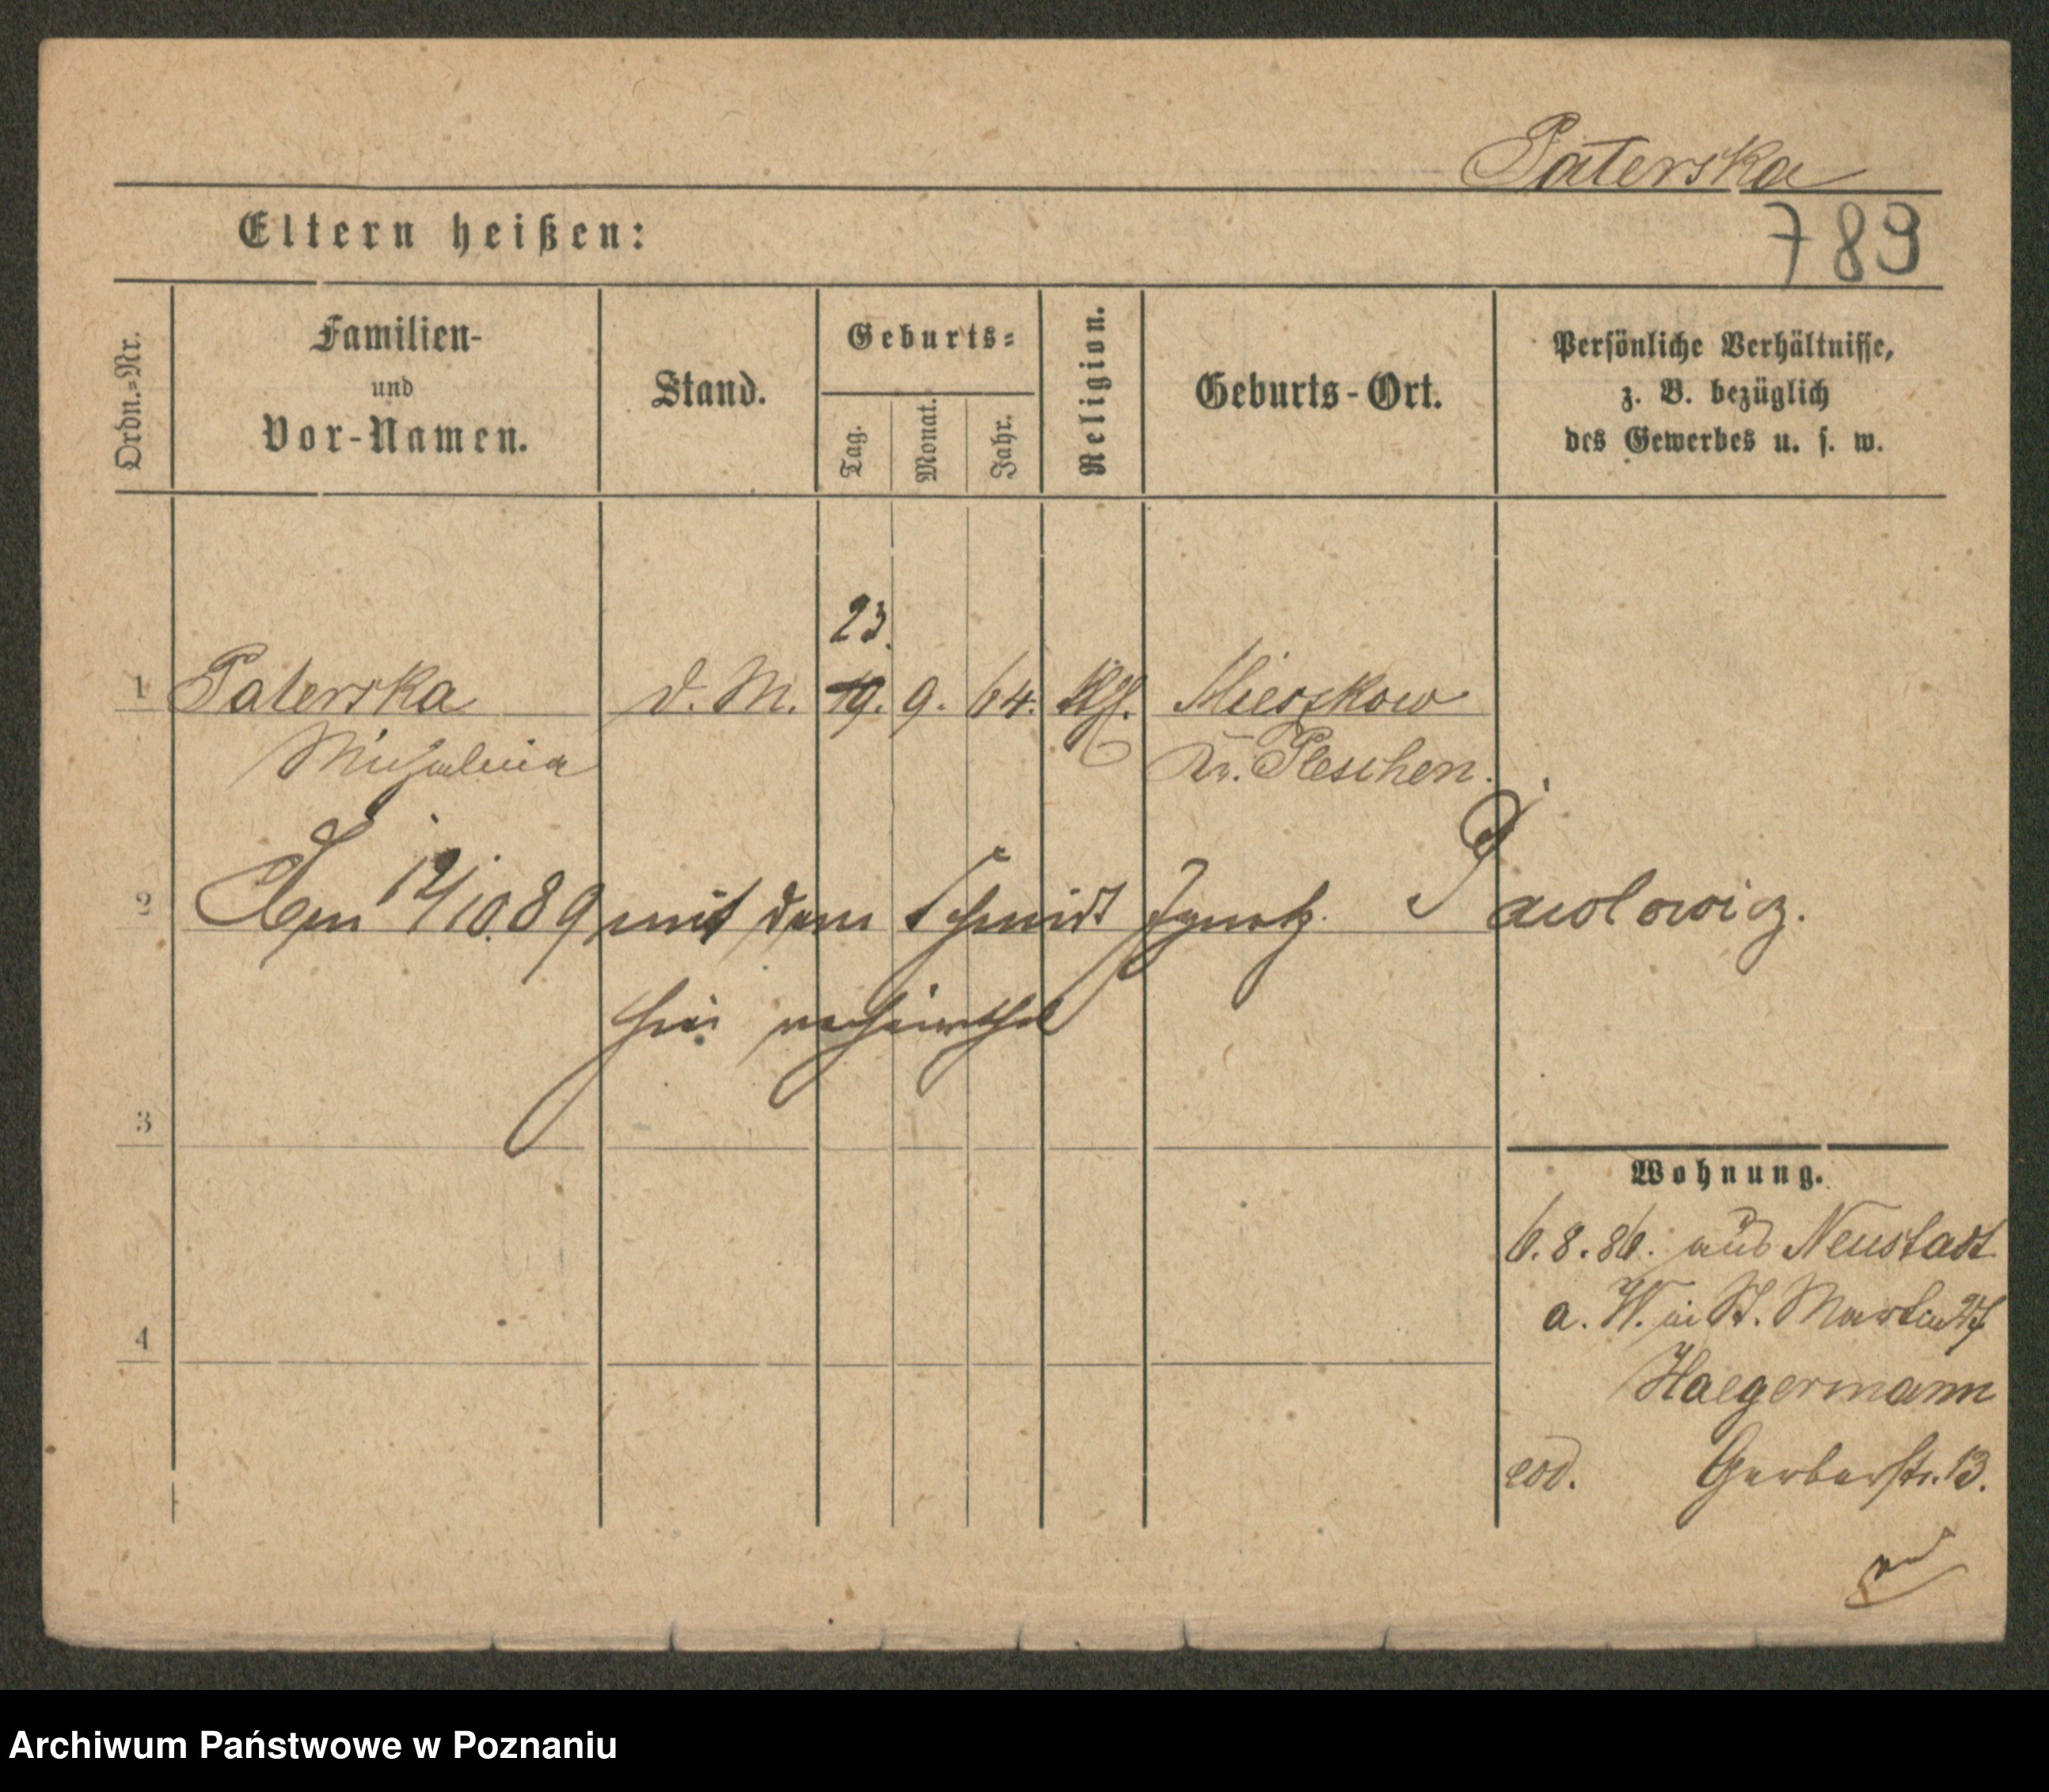 Paterska
789
Eltern heißen:
Ordn.=Nr.
Familien-
und
Vor-Namen.
Stand.
Geburts=
Tag.
Monat.
Jahr.
Religion.
Geburts-Ort.
Persönliche Verhältnisse,
z. B. bezüglich
des Gewerbes u. s. w.
23.
1 Paterska d. M. 19. 9. 64. kth. Mieszkow
Michalina Kr. Pleschen.
2 Am 12/10.89 mit dem Schmidt Ignatz Pawlowicz.
hier verheirathet
3
Wohnung.
6.8.86. aus Neustadt
a. W. in St. Martin
4
Haegermann
eod. Gerberstr. 13.
Archiwum Państwowe w Poznaniu